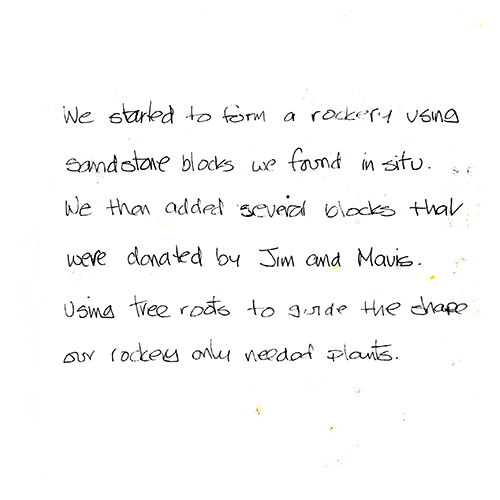 We started to form a rockery using
sandstone blocks we found in situ.
We then added several blocks that
were donated by Jim and Mavis.
Using tree roots to guide the shape
our rockery only needed plants.